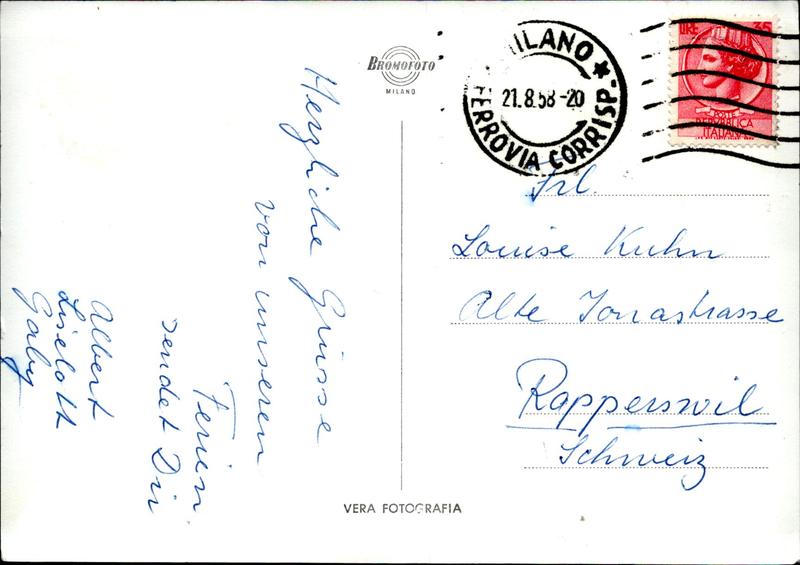 Herzliche Grüsse
von unseren
Ferien
sendet Dir
Albert
Liselott
Gaby
BROMOFOTO
MILANO
VERA FOTOGRAFIA
MILANO
21.8.58-20
FERROVIA CORRISP.
LIRE 35
POSTE
REPVBBLICA
ITALIANA
Frl.
Louise Kuhn
Alte Jonastrasse
Rapperswil
Schweiz